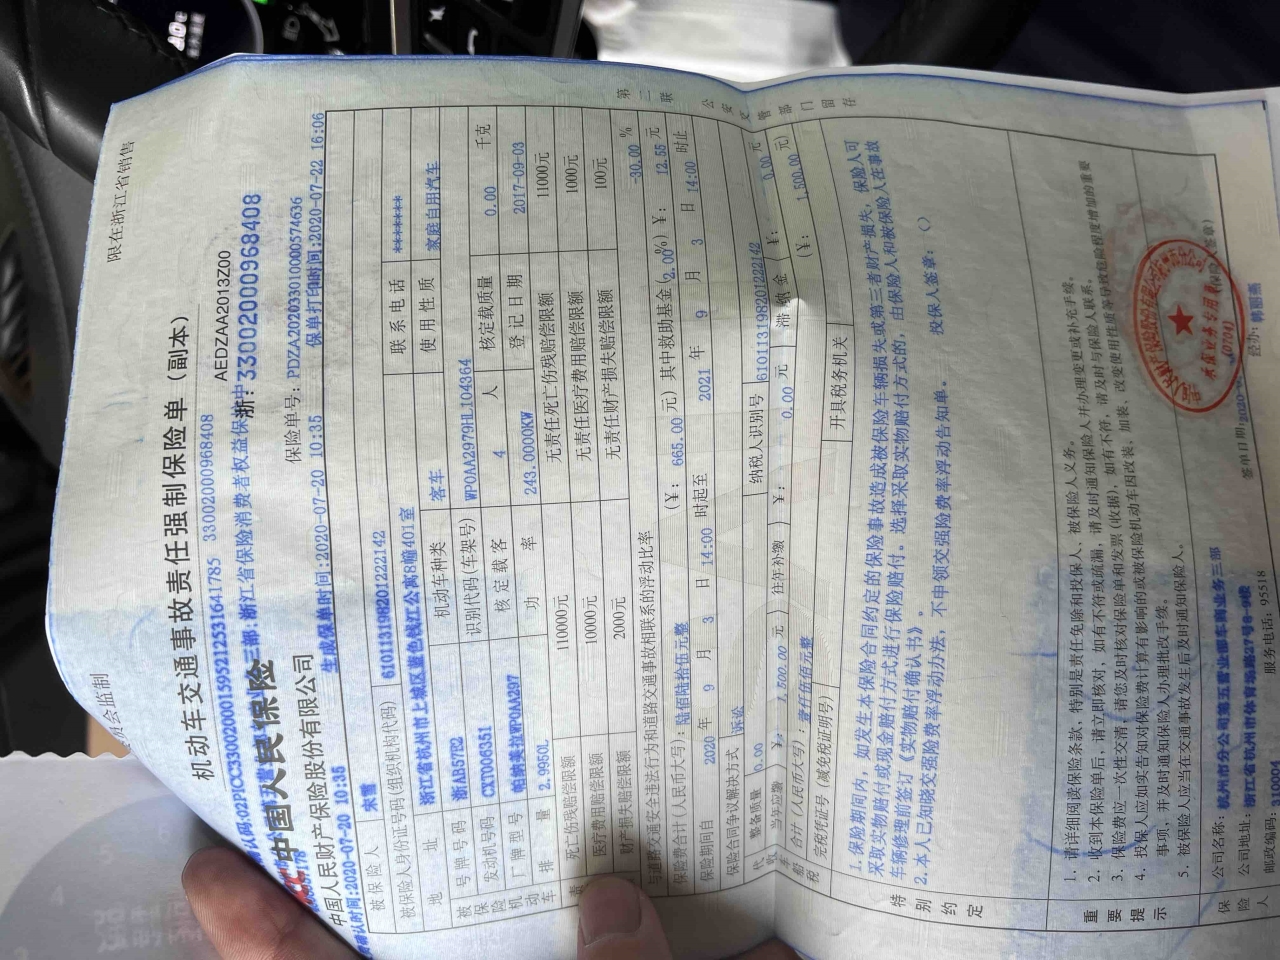 限在浙江省销售
机动车交通事故责任强制保险单（副本）
AEDZAA2013Z00
确认码:02PICC330020001595212531641785 33002000968408
三部:浙江省保险消费者权益保
浙:33002000968408
中国人民保险
保险单号: PDZA20203301000057 4636
中国人民财产保险股份有限公司
生成保单时间:2020-07-20 10:35 保单打印时间:2020-07-22 16:06
确认时间:2020-07-20 10:35
被保险人 宋雪
被保险人身份证号码(组织机构代码) 610113198201222142
地址 浙江省杭州市上城区蓝色钱江公寓8幢401室 联系电话 ******
被保险机动车
号牌号码 浙AB57R2 机动车种类 客车 使用性质 家庭自用汽车
发动机号码 CXT006351 识别代码(车架号) WP0AA2979HL104364
厂牌型号 帕纳美拉WP0AA297 核定载客 4 人 核定载质量 0.00 千克
排量 2.9950L 功率 243.0000KW 登记日期 2017-09-03
死亡伤残赔偿限额 110000元 无责任死亡伤残赔偿限额 11000元
医疗费用赔偿限额 10000元 无责任医疗费用赔偿限额 1000元
财产损失赔偿限额 2000元 无责任财产损失赔偿限额 100元
与道路交通安全违法行为和道路交通事故相联系的浮动比率 -30.00 %
保险费合计(人民币大写): 陆佰陆拾伍元整 (¥: 665.00 元) 其中救助基金(2.00%)¥: 12.55 元
保险期间自 2020 年 9 月 3 日 14:00 时起至 2021 年 9 月 3 日 14:00 时止
保险合同争议解决方式 诉讼
代收车船税
整备质量 0.00 纳税人识别号 610113198201222142
当年应缴 ¥: 1,500.00 元 往年补缴 ¥: 0.00 元 滞纳金 ¥: 0.00 元
合计(人民币大写): 壹仟伍佰元整 (¥: 1,500.00 元)
完税凭证号(减免税证明号) 开具税务机关
第二联 公安交管部门留存
特别约定
1.保险期间内，如发生本保险合同约定的保险事故造成被保险车辆损失或第三者财产损失，保险人可
采取实物赔付或现金赔付方式进行保险赔付。选择采取实物赔付方式的，由保险人和被保险人在事故
车辆修理前签订《实物赔付确认书》。
2.本人已知晓交强险费率浮动办法，不申领交强险费率浮动告知单。 投保人签章:
重要提示
1. 请详细阅读保险条款，特别是责任免除和投保人、被保险人义务。
2. 收到本保险单后，请立即核对，如有不符或疏漏，请及时通知保险人并办理变更或补充手续。
3. 保险费应一次性交清，请您及时核对保险单和发票(收据)，如有不符，请及时与保险人联系。
4. 投保人应如实告知对保险费计算有影响的或被保险机动车因改装、加装、改变使用性质等导致危险程度增加的重要
事项，并及时通知保险人办理批改手续。
5. 被保险人应当在交通事故发生后及时通知保险人。
保险人
公司名称: 杭州市分公司第五营业部车商业务三部
公司地址: 浙江省杭州市体育场路27号
邮政编码: 310004 服务电话: 95518 签单日期:2020-
承保业务专用章
(0704)
经办: 韩丽燕